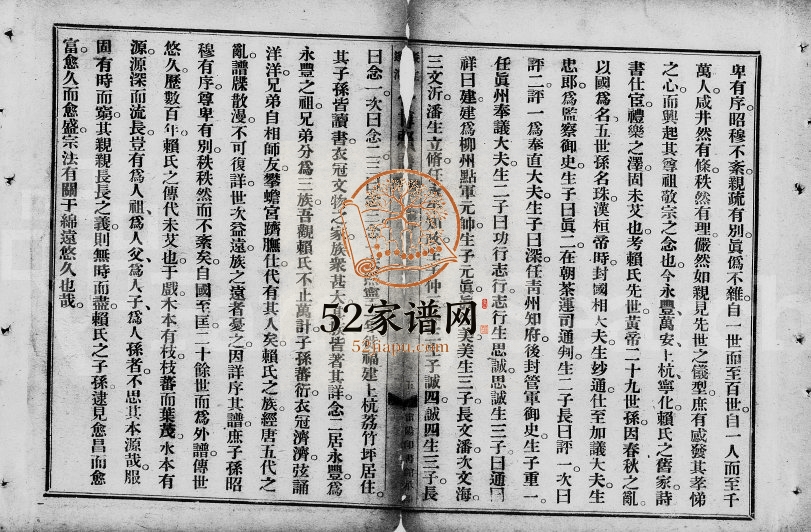 卑有序昭穆不紊親疏有別眞僞不雜自一世而至百世自一人而至千
萬人咸井然有條秩然有理儼然如親見先世之儀型庶有感發其孝悌
之心而興起其尊祖敬宗之念也今永豐萬安上杭寧化賴氏之舊家詩
書仕宦禮樂之澤固未艾也考賴氏先世黃帝二十九世孫因春秋之亂
以國爲名五世孫名珠漢桓帝時封國相大夫生鈔通仕至加議大夫生
忠郎爲監察御史生子曰眞二在朝茶運司通判生二子長曰評一次曰
評二評一爲奉直大夫生子曰深任青州知府後封管軍御史生子重一
任眞州奉議大夫生二子曰功行志行志行生思誠思誠生三子曰通
祥曰建建爲柳州點軍元帥生子元眞 美美生三子長文潘次文海
三文沂潘生立脩任 子仲 子誠四誠四生三子長
曰念一次曰念二三曰念三念 寧 福建上杭荔竹坪居住
其子孫皆讀書衣冠文物之家族衆甚大 皆著其詳念二居永豐爲
永豐之祖兄弟分爲三族吾觀賴氏不止萬計子孫蕃衍衣冠濟濟弦誦
洋洋兄弟自相師友攀蟾宮躋膴仕代有其人矣賴氏之族經唐五代之
亂譜牒散漫不可復詳世次益遠族之遠者憂之因詳序其譜庶子孫昭
穆有序尊卑有別秩秩然而不紊矣自國至匡二十餘世而爲外譜傳世
悠久歷數百年賴氏之傳代未艾也于戲木本有枝枝蕃而葉茂水本有
源源深而流長豈有爲人祖爲人父爲人子爲人孫者不思其本源哉服
固有時而窮其親親長長之義則無時而盡賴氏之子孫遠見愈昌而愈
富愈久而愈盛宗法有關于綿遠悠久也哉
52家谱网
52jiapu.com